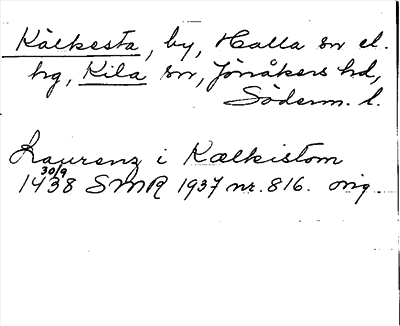 Kälkesta, by, Halla sn el.
hg, Kila sn, Jönåkers hd,
Söderm. l.
Laurenz i Kælkistom
30/9
1438 SMR 1937 nr. 816. orig.